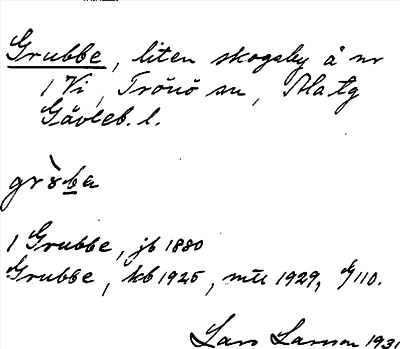 Grubbe, liten skogsby å nr
1 Vi, Trönö sn, Matg
Gävleb. l.
1 Grubbe, jb 1880
Grubbe, kb 1925, mtl 1929, G110.
Lars Larsson 1931